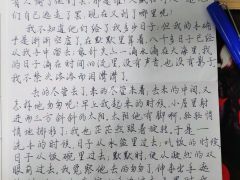 们自己逃走了罢,现在又到了哪里呢?
我不知道他们给了我多少日子,但我的手确
乎是渐渐空虚了。在默默里算着,八千多日子已经从
我手中溜去;像针尖上一滴水滴在大海里,我
的日子滴在时间的流里,没有声音,也没有影子
我不禁头涔涔而泪潸潸了。
去的尽管去了,来的尽管来着,去来的中间,又
怎样地匆匆呢?早上我起来的时候,小屋里射
进两三方斜斜的太阳。太阳他有脚啊,轻轻悄
悄地挪移了;我也茫茫然跟着旋转。于是——
洗手的时候,日子从水盆里过去;吃饭的时候
日子从饭碗里过去;默默时,便从凝然的双
眼前过去。我觉察他去的匆匆了,伸手出手遮